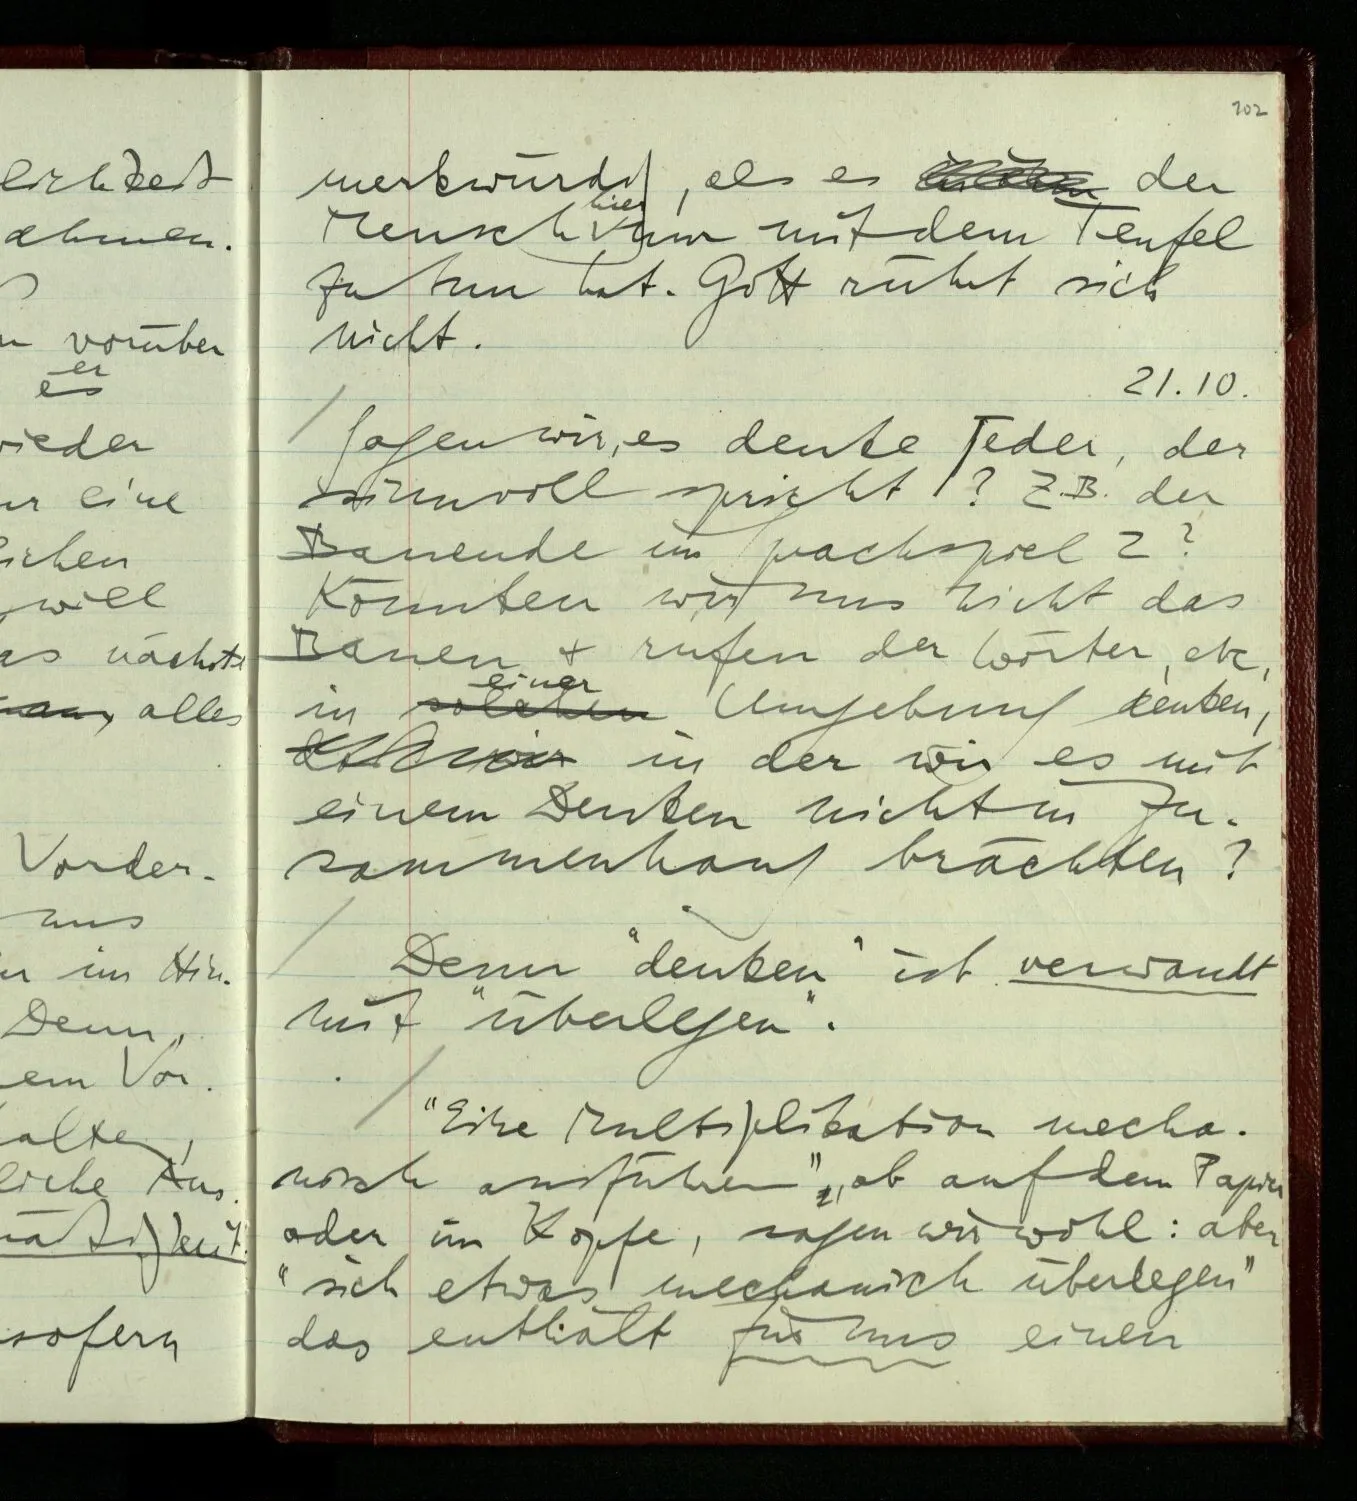 lichkeit
ahmen.
vorüber
er
es
wieder
nur eine
lichen
will
as nächste
alles
Vorder-
uns
im Hin-
Denn,
em Vor-
alten,
liche Aus-
mäßigkeit
sofern
202
merkwürdig, als es der
Mensch hier nur mit dem Teufel
zu tun hat. Gott rührt sich
nicht.
21.10.
/ Sagen wir, es denke Jeder, der
sinnvoll spricht? Z.B. der
Bauende im Sprachspiel 2?
Könnten wir uns nicht das
Bauen & rufen der Wörter, etc,
in solchen einer Umgebung denken,
in der wir es mit
einem Denken nicht im Zu-
sammenhang brächten?
/ Denn "denken" ist verwandt
mit "überlegen".
/ "Eine Multiplikation mecha-
nisch ausführen", ob auf dem Papier
oder im Kopfe, sagen wir wohl: aber
"sich etwas mechanisch überlegen"
das enthält für uns einen